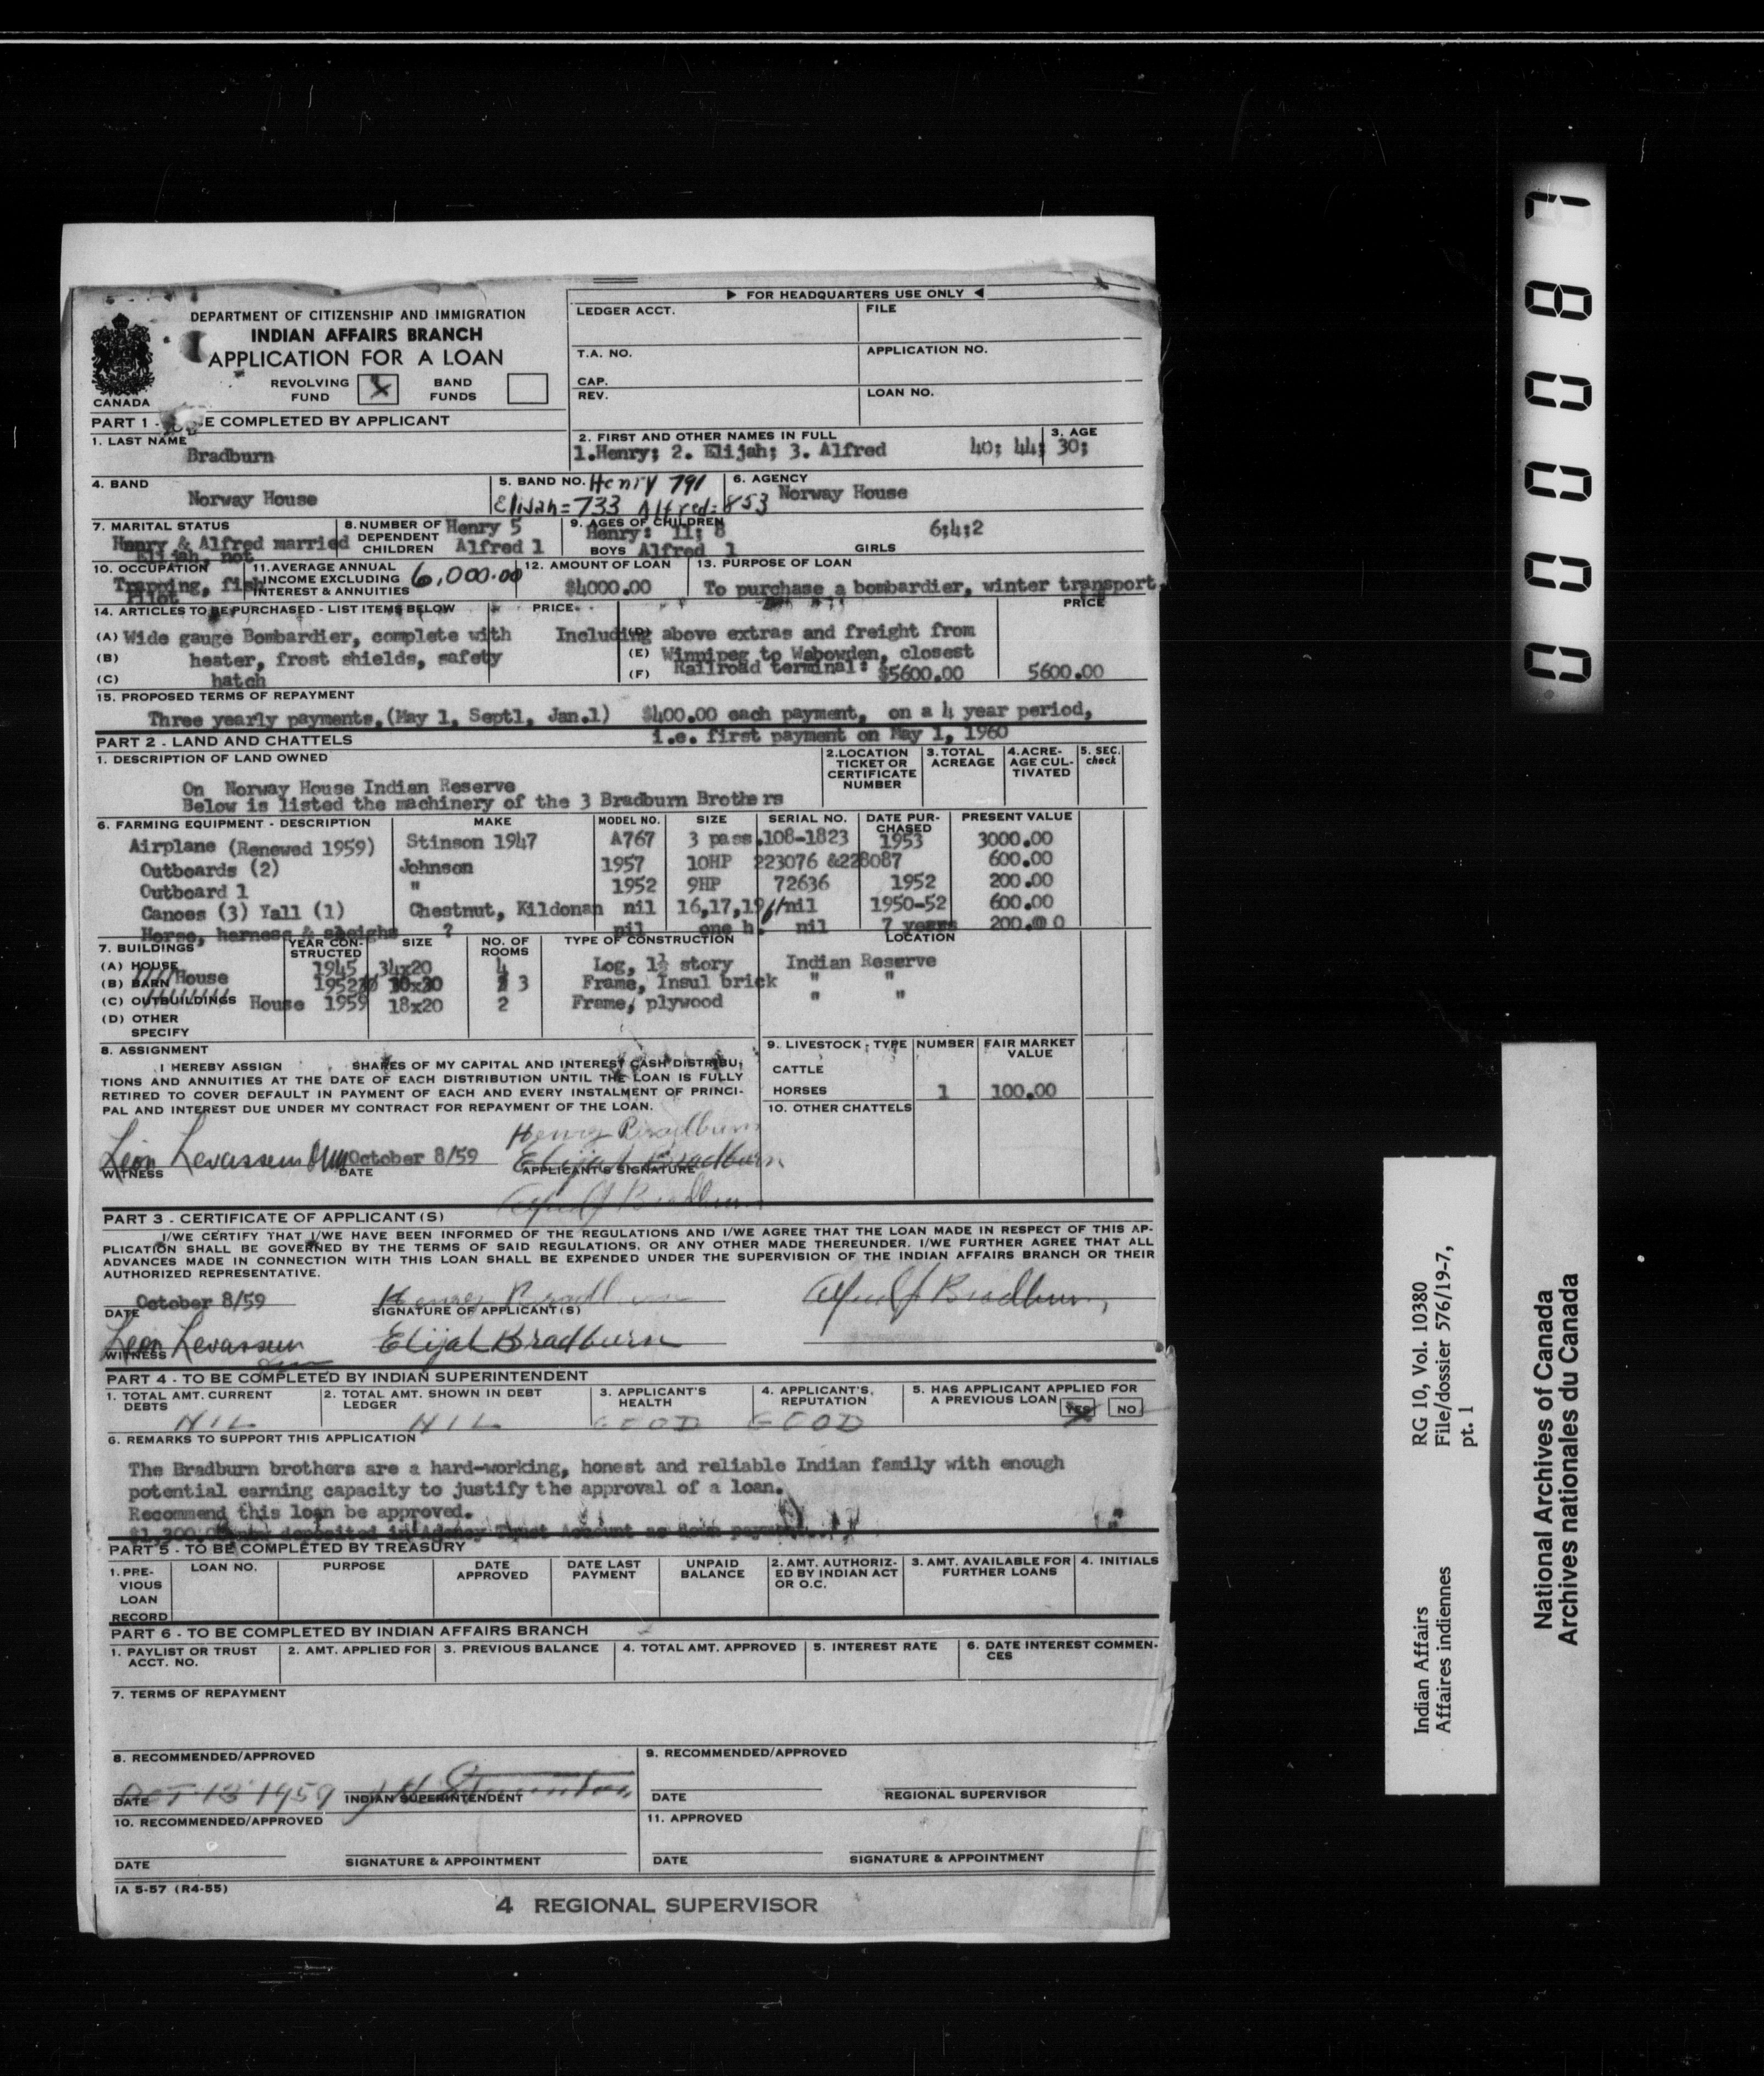 DEPARTMENT OF CITIZENSHIP AND IMMIGRATION
INDIAN AFFAIRS BRANCH
APPLICATION FOR A LOAN
REVOLVING FUND X BAND FUNDS
CANADA
▶ FOR HEADQUARTERS USE ONLY ◀
LEDGER ACCT. FILE
T.A. NO. APPLICATION NO.
CAP.
REV. LOAN NO.
PART 1 - E COMPLETED BY APPLICANT
1. LAST NAME Bradburn
2. FIRST AND OTHER NAMES IN FULL 1.Henry; 2. Elijah; 3. Alfred
3. AGE 40; 44; 30;
4. BAND Norway House
5. BAND NO. Henry 791
Elijah=733 Alfred=853
6. AGENCY Norway House
7. MARITAL STATUS Henry & Alfred married
Elijah, not
8. NUMBER OF DEPENDENT CHILDREN Henry 5
Alfred 1
9. AGES OF CHILDREN Henry: 11; 8
BOYS Alfred 1 GIRLS 6;4;2
10. OCCUPATION Trapping, fish
Pilot
11. AVERAGE ANNUAL INCOME EXCLUDING INTEREST & ANNUITIES 6,000.00
12. AMOUNT OF LOAN $4000.00
13. PURPOSE OF LOAN To purchase a bombardier, winter transport.
14. ARTICLES TO BE PURCHASED - LIST ITEMS BELOW PRICE PRICE
(A) Wide gauge Bombardier, complete with
(B) heater, frost shields, safety
(C) hatch
(D) Including above extras and freight from
(E) Winnipeg to Wabowden, closest
(F) Railroad terminal: $5600.00 5600.00
15. PROPOSED TERMS OF REPAYMENT
Three yearly payments,(May 1, Sept1, Jan.1) $400.00 each payment, on a 4 year period,
i.e. first payment on May 1, 1960
PART 2 - LAND AND CHATTELS
1. DESCRIPTION OF LAND OWNED
2. LOCATION TICKET OR CERTIFICATE NUMBER
3. TOTAL ACREAGE
4. ACREAGE CULTIVATED
5. SEC. check
On Norway House Indian Reserve
Below is listed the machinery of the 3 Bradburn Brothers
6. FARMING EQUIPMENT - DESCRIPTION MAKE MODEL NO. SIZE SERIAL NO. DATE PURCHASED PRESENT VALUE
Airplane (Renewed 1959) Stinson 1947 A767 3 pass. 108-1823 1953 3000.00
Outboards (2) Johnson 1957 10HP 223076 &228087 600.00
Outboard 1 " 1952 9HP 72636 1952 200.00
Canoes (3) Yall (1) Chestnut, Kildonan nil 16,17,19 nil 1950-52 600.00
Horse, harness & sleighs ? nil one h. nil 7 years 200.00
7. BUILDINGS YEAR CONSTRUCTED SIZE NO. OF ROOMS TYPE OF CONSTRUCTION LOCATION
(A) HOUSE 1945 34x20 4 Log, 1½ story Indian Reserve
(B) BARN House 1952 30x20 3 Frame, Insul brick " "
(C) OUTBUILDINGS House 1959 18x20 2 Frame, plywood " "
(D) OTHER SPECIFY
8. ASSIGNMENT
I HEREBY ASSIGN SHARES OF MY CAPITAL AND INTEREST CASH DISTRIBU-
TIONS AND ANNUITIES AT THE DATE OF EACH DISTRIBUTION UNTIL THE LOAN IS FULLY
RETIRED TO COVER DEFAULT IN PAYMENT OF EACH AND EVERY INSTALMENT OF PRINCI-
PAL AND INTEREST DUE UNDER MY CONTRACT FOR REPAYMENT OF THE LOAN.
9. LIVESTOCK - TYPE NUMBER FAIR MARKET VALUE
CATTLE
HORSES 1 100.00
10. OTHER CHATTELS
Henry Bradburn
Leon Levasseur October 8/59 Elijah Bradburn
WITNESS DATE APPLICANT'S SIGNATURE
Alfred J Bradburn
PART 3 - CERTIFICATE OF APPLICANT(S)
I/WE CERTIFY THAT I/WE HAVE BEEN INFORMED OF THE REGULATIONS AND I/WE AGREE THAT THE LOAN MADE IN RESPECT OF THIS AP-
PLICATION SHALL BE GOVERNED BY THE TERMS OF SAID REGULATIONS, OR ANY OTHER MADE THEREUNDER. I/WE FURTHER AGREE THAT ALL
ADVANCES MADE IN CONNECTION WITH THIS LOAN SHALL BE EXPENDED UNDER THE SUPERVISION OF THE INDIAN AFFAIRS BRANCH OR THEIR
AUTHORIZED REPRESENTATIVE.
October 8/59 Henry Bradburn Alfred J Bradburn
DATE SIGNATURE OF APPLICANT(S)
Leon Levasseur Elijah Bradburn
WITNESS
PART 4 - TO BE COMPLETED BY INDIAN SUPERINTENDENT
1. TOTAL AMT. CURRENT DEBTS NIL
2. TOTAL AMT. SHOWN IN DEBT LEDGER NIL
3. APPLICANT'S HEALTH GOOD
4. APPLICANT'S, REPUTATION GOOD
5. HAS APPLICANT APPLIED FOR A PREVIOUS LOAN YES NO
6. REMARKS TO SUPPORT THIS APPLICATION
The Bradburn brothers are a hard-working, honest and reliable Indian family with enough
potential earning capacity to justify the approval of a loan.
Recommend this loan be approved.
deposited in Agency Trust Account as down
PART 5 - TO BE COMPLETED BY TREASURY
1. PREVIOUS LOAN RECORD LOAN NO. PURPOSE DATE APPROVED DATE LAST PAYMENT UNPAID BALANCE
2. AMT. AUTHORIZED BY INDIAN ACT OR O.C.
3. AMT. AVAILABLE FOR FURTHER LOANS
4. INITIALS
PART 6 - TO BE COMPLETED BY INDIAN AFFAIRS BRANCH
1. PAYLIST OR TRUST ACCT. NO.
2. AMT. APPLIED FOR
3. PREVIOUS BALANCE
4. TOTAL AMT. APPROVED
5. INTEREST RATE
6. DATE INTEREST COMMENCES
7. TERMS OF REPAYMENT
8. RECOMMENDED/APPROVED
OCT 13 1959
DATE INDIAN SUPERINTENDENT
9. RECOMMENDED/APPROVED
DATE REGIONAL SUPERVISOR
10. RECOMMENDED/APPROVED
DATE SIGNATURE & APPOINTMENT
11. APPROVED
DATE SIGNATURE & APPOINTMENT
IA 5-57 (R4-55)
4 REGIONAL SUPERVISOR
000087
Indian Affairs RG 10, Vol. 10380
Affaires indiennes File/dossier 576/19-7,
pt. 1
National Archives of Canada
Archives nationales du Canada